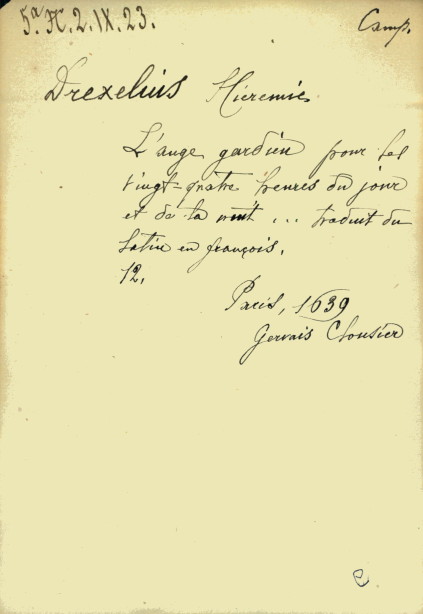 5ª H. 2. IX. 23.
Camp.
Drexelius Hieremie
L'ange gardien pour les
vingt-quatre heures du jour
et de la nuit ... traduit du
latin en françois.
12.
Paris, 1639
Gervais Clousier
e